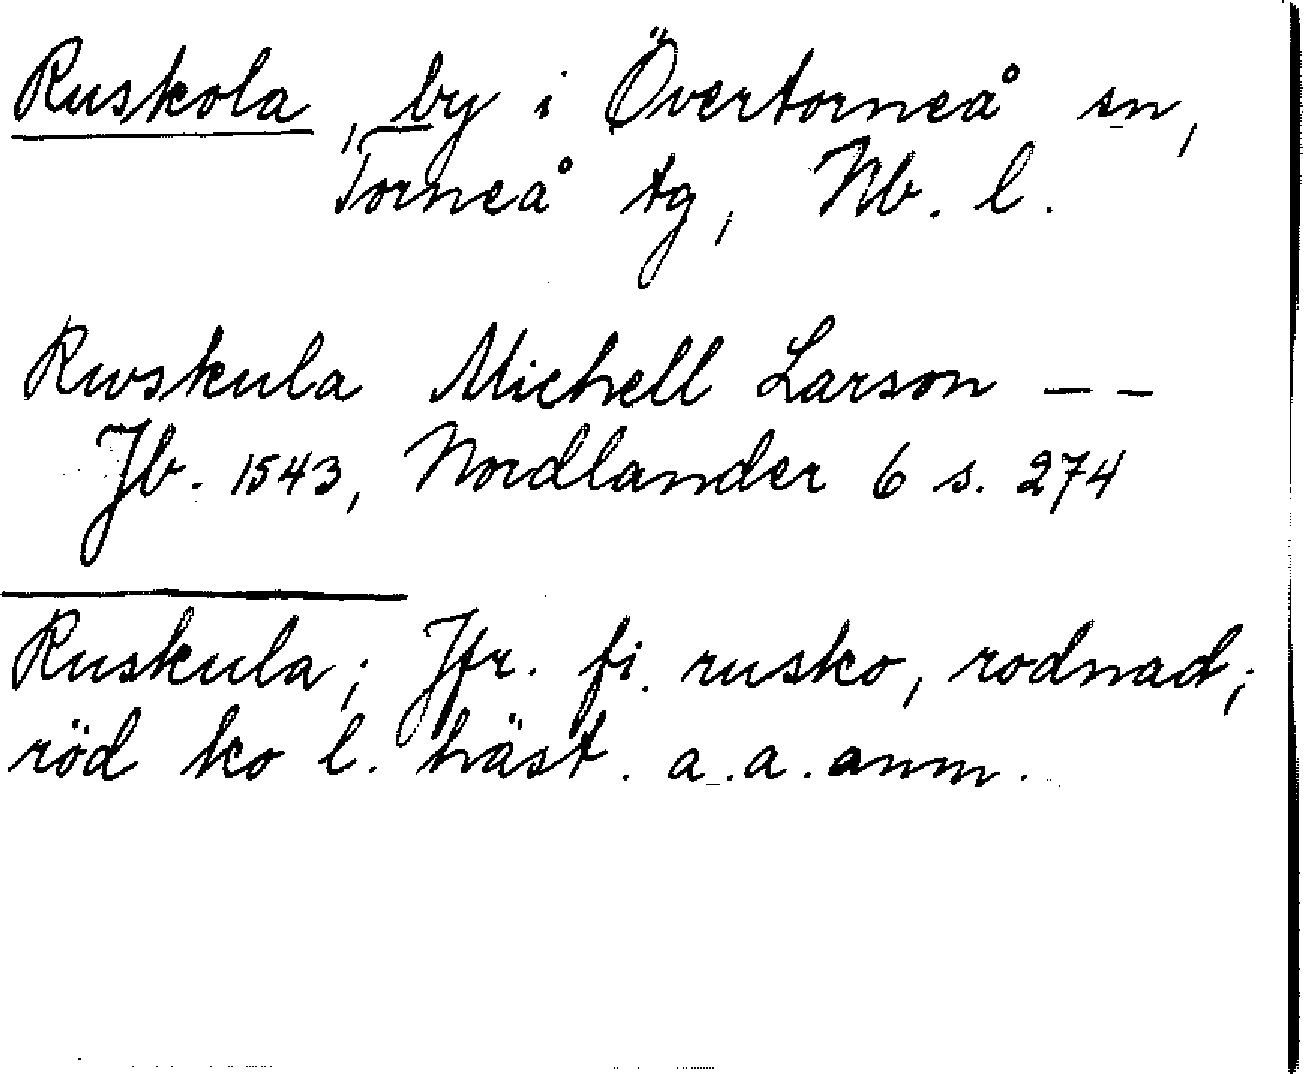 Ruskola, by i Övertorneå sn,
Torneå tg, Nb. l.
Rwskula Michell Larson – –
Jb. 1543, Nordlander 6 s. 274
Ruskula; Jfr. fi. rusko, rodnad;
röd ko l. häst. a.a. anm.